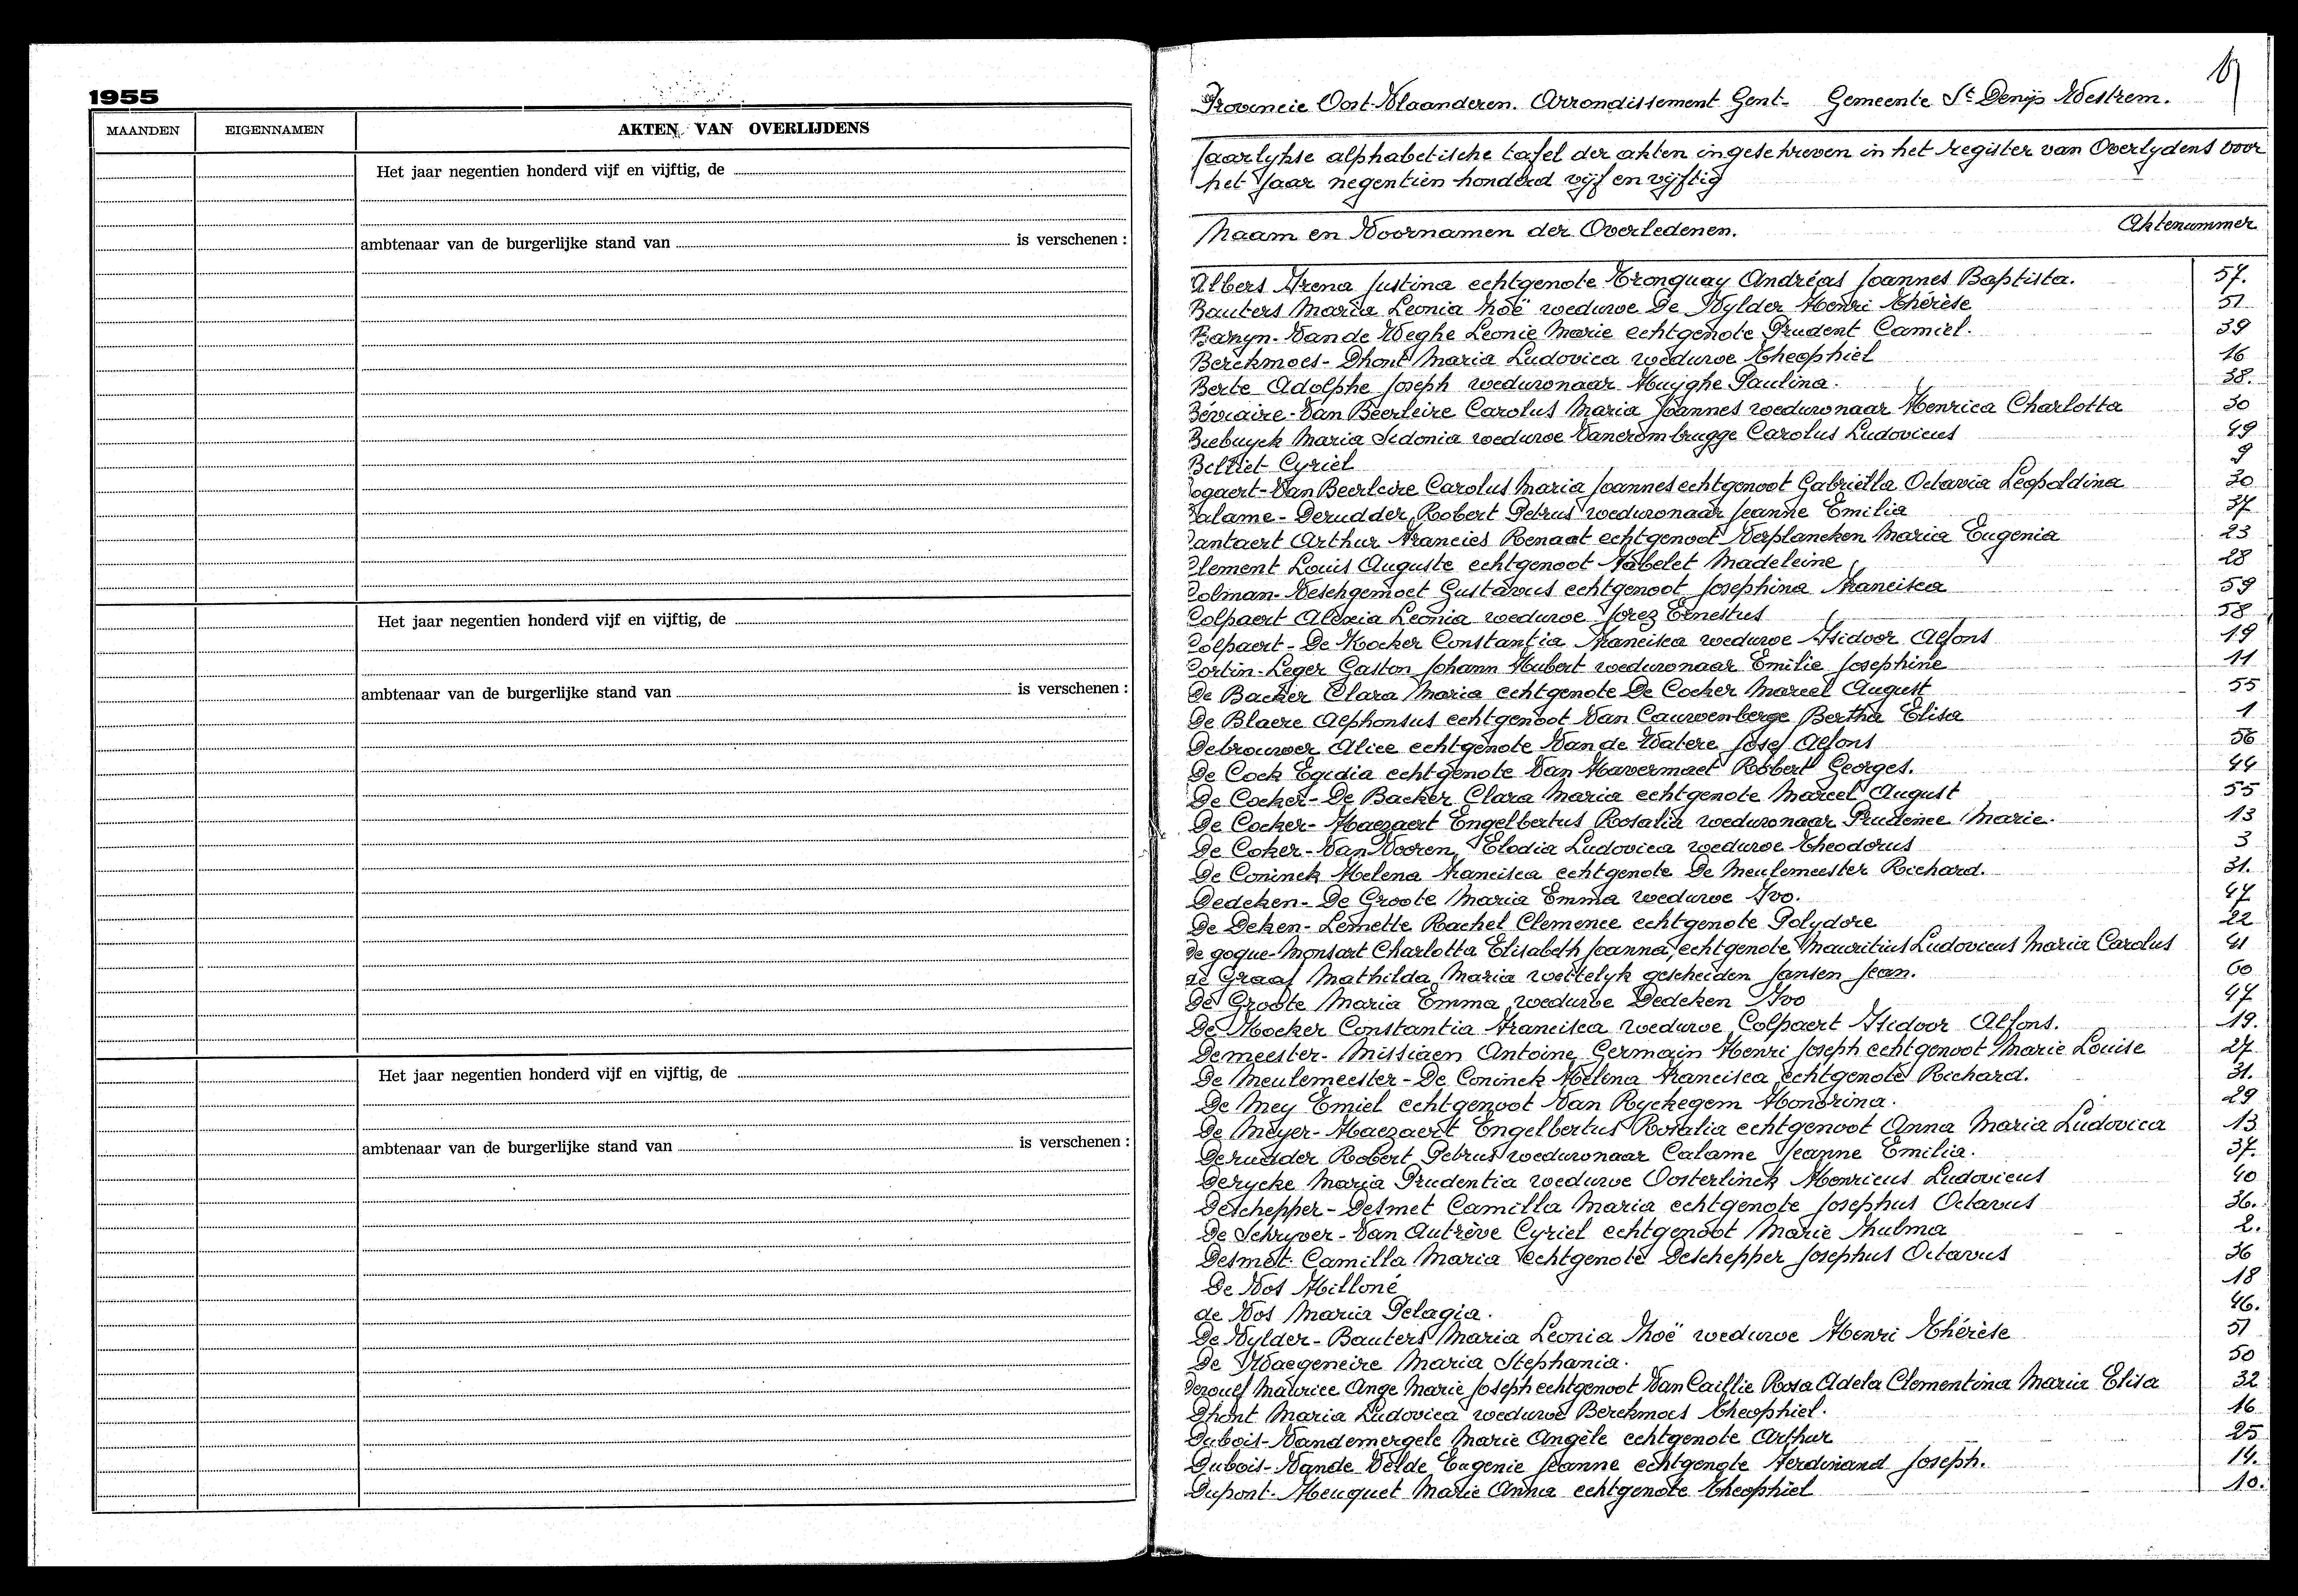 1955
MAANDEN EIGENNAMEN AKTEN VAN OVERLIJDENS
Het jaar negentien honderd vijf en vijftig, de
ambtenaar van de burgerlijke stand van is verschenen :
Het jaar negentien honderd vijf en vijftig, de
ambtenaar van de burgerlijke stand van is verschenen :
Het jaar negentien honderd vijf en vijftig, de
ambtenaar van de burgerlijke stand van is verschenen :
Provincie Oost-Vlaanderen. Arrondissement Gent- Gemeente St Denijs Westrem.
Jaarlykse alphabetische tafel der akten ingeschreven in het register van Overlydens voor
het Jaar negentien honderd vijf en vijftig
Naam en Voornamen der Overledenen. Aktenummer
Albers Irena Justina echtgenote Tronquay Andréas Joannes Baptista. 57.
Bauters Maria Leonia Zoë weduwe De Vylder Henri Thérèse 51
Baryn-Van de Weghe Leonie Marie echtgenote Prudent Camiel. 39
Berckmoes-Dhont Maria Ludovica weduwe Theophiel 16
Berte Adolphe Joseph weduwnaar Huyghe Paulina. 38.
Béviaire-Van Beerleire Carolus Maria Joannes weduwnaar Henrica Charlotta 30
Biebuyck Maria Sidonia weduwe Vancrombrugge Carolus Ludovicus 49
Billiet Cyriel 9
ogaert-Van Beerleire Carolus Maria Joannes echtgenoot Gabriella Octavia Leopoldina 30
Calame-Derudder Robert Petrus weduwnaar Jeanne Emilia 37
Cantaert Arthur Francies Renaat echtgenoot Verplancken Maria Eugenia 23
Clement Louis Auguste echtgenoot Vabelet Madeleine 28
Colman-Weschgemoet Gustavus echtgenoot Josephina Francisca 59
Colpaert Alexia Leonia weduwe Jorez Ernestus 58
Colpaert-De Hocker Constantia Francisca weduwe Isidoor Alfons 19
Cortin-Leger Gaston Johann Hubert weduwnaar Emilie Josephine 11
De Backer Clara Maria echtgenote De Cocker Marcel August 55
De Blaere Alphonsus echtgenoot Van Cauwenberge Bertha Elisa 1
Debrouwer Alice echtgenote Van de Watere Josef Alfons 56
De Cock Egidia echtgenote Van Havermaet Robert Georges. 44
De Cocker-De Backer Clara Maria echtgenote Marcel August 55
De Cocker-Haezaert Engelbertus Rosalia weduwnaar Prudence Marie. 13
De Coker-Van Vooren Elodia Ludovica weduwe Theodorus 3
De Coninck Helena Francisca echtgenote De Meulemeester Richard. 31.
Dedeken-De Groote Maria Emma weduwe Ivo. 47
De Deken-Lemette Rachel Clemence echtgenote Polydore 22
De goque-Monsart Charlotta Elisabeth Joanna, echtgenote Mauritius Ludovicus Maria Carolus 41
de Graaf Mathilda Maria wettelyk gescheiden Jansen Jean. 60
De Groote Maria Emma weduwe Dedeken Ivo 47
De Hocker Constantia Francisca weduwe Colpaert Isidoor Alfons. 19.
Demeester-Missiaen Antoine Germain Henri Joseph echtgenoot Marie Louise 27
De Meulemeester-De Coninck Helena Francisca echtgenote Richard. 31.
De Mey Emiel echtgenoot Van Ryckegem Honorina. 29
De Meyer-Haezaert Engelbertus Rosalia echtgenoot Anna Maria Ludovica 13
Derudder Robert Petrus weduwnaar Calame Jeanne Emilia. 37.
Derycke Maria Prudentia weduwe Oosterlinck Henricus Ludovicus 40
Deschepper-Desmet Camilla Maria echtgenote Josephus Octavus 36.
De Schryver-Van Autrève Cyriel echtgenoot Marie Zulma 2.
Desmet Camilla Maria echtgenote Deschepper Josephus Octavus 36
De Vos Milloné 18
de Vos Maria Pelagia. 46.
De Vylder-Bauters Maria Leonia Zoë weduwe Henri Thérèse 51
De Waegeneire Maria Stephania. 50
Dezouef Maurice Ange Marie Joseph echtgenoot Van Caillie Rosa Adela Clementina Maria Elisa 32
Dhont Maria Ludovica weduwe Berckmoes Theophiel. 16
Dubois-Vandemergele Marie Angèle echtgenote Arthur 25
Dubois-Vande Velde Eugenie Jeanne echtgenote Ferdinand Joseph. 14.
Dupont-Meuquet Marie Anna echtgenote Theophiel 10.